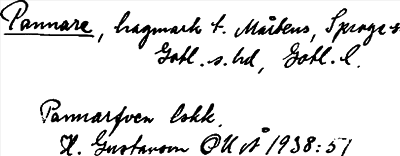 Pannare, hagmark t. Mårtens, Sproge s
Gotl. s. hd, Gotl. l.
Pannarfven lokk.
H. Gustavson OUÅ 1938:51